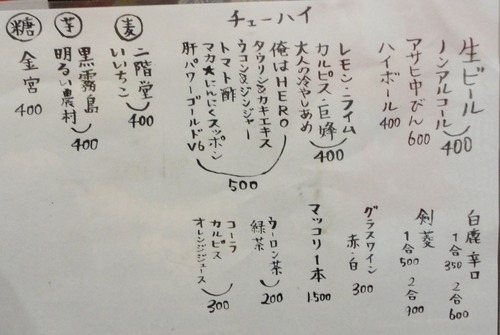 生ビール
ノンアルコール
400
アサヒ中びん
600
ハイボール
400
チューハイ
レモン・ライム
カルピス・巨蜂
大人の冷やしあめ
400
俺はHERO
タウリン&カキエキス
ウコン&ジンジャー
トマト酢
マカ★にんにくスッポン
肝パワーゴールドV6
500
麦
二階堂
いいちこ
400
芋
黒霧島
明るい農村
400
糖
金宮
400
白鹿 辛口
1合 350
2合 600
剣菱
1合 500
2合 900
グラスワイン
赤・白 300
マッコリ一本
1500
ウーロン茶
緑茶
200
コーラ
カルピス
オレンジジュース
300